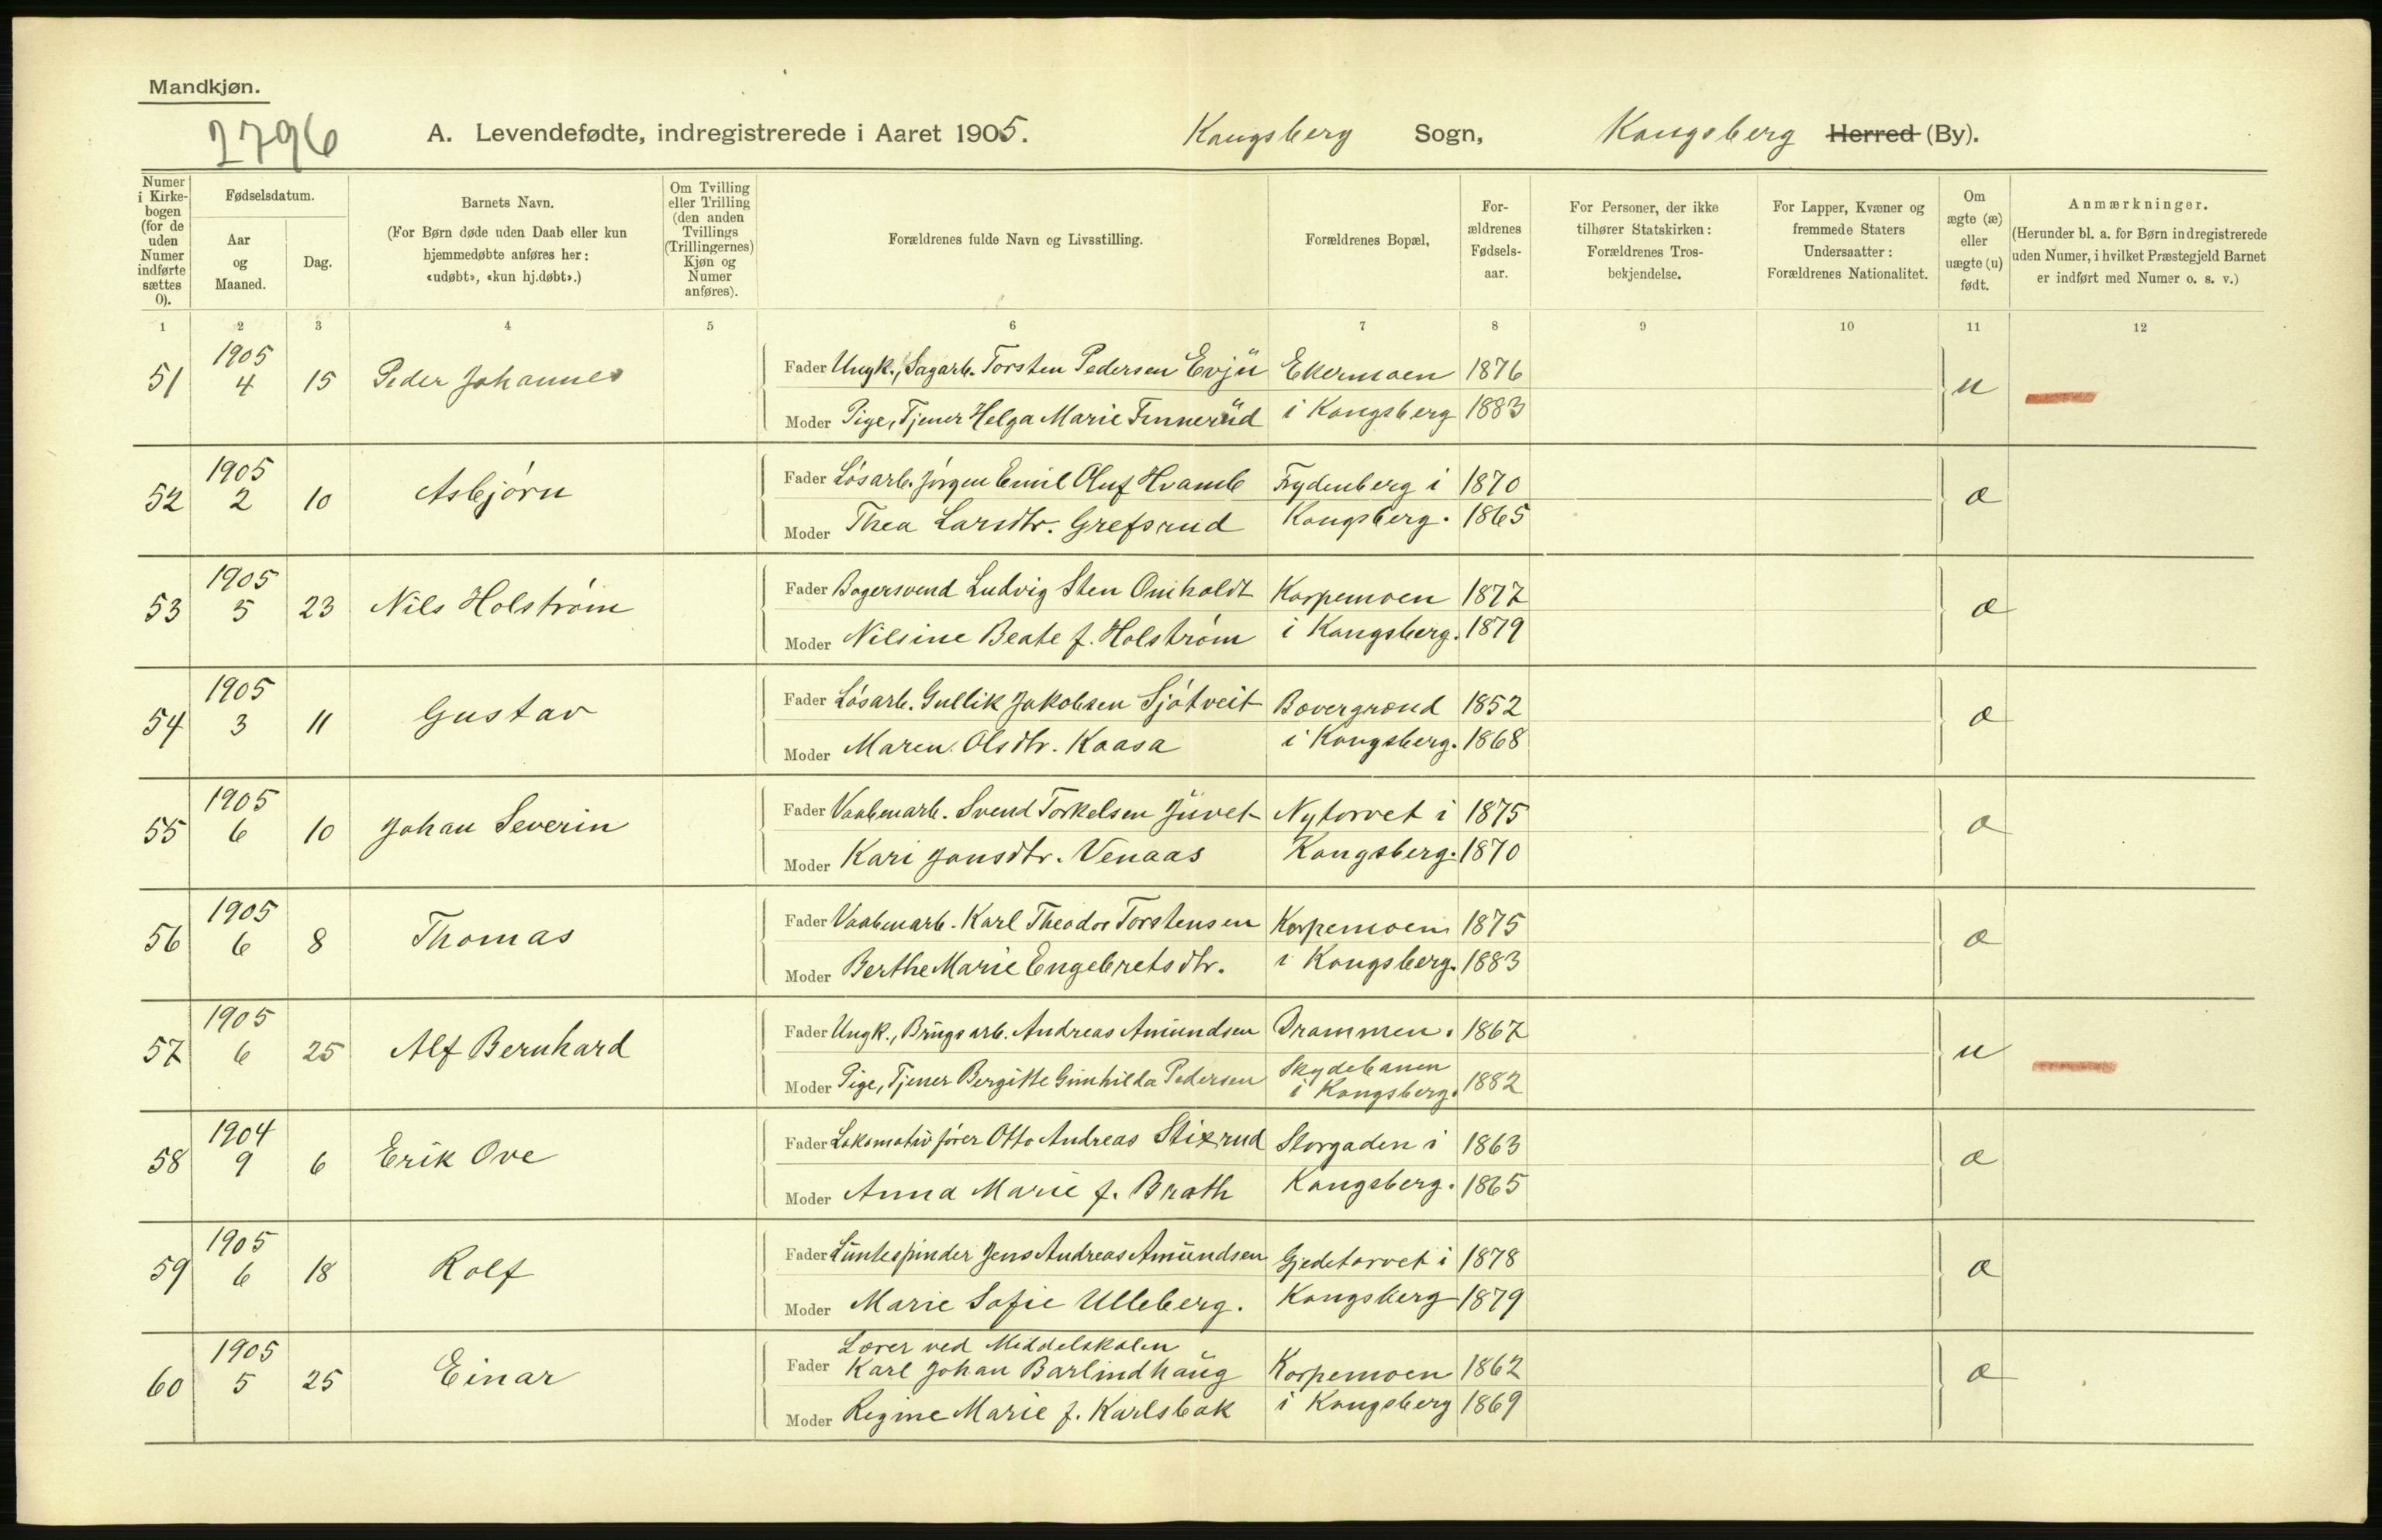 Mandkjøn.
2796
A. Levendefødte, indregistrerede i Aaret 1905. Kongsberg Sogn, Kongsberg Herred (By).
Numer i Kirkebogen (for de uden Numer indførte sættes 0).
Fødselsdatum.
Aar og Maaned.
Dag.
Barnets Navn.
(For Børn døde uden Daab eller kun hjemmedøbte anføres her: «udøbt», «kun hj.døbt».)
Om Tvilling eller Trilling (den anden Tvillings (Trillingernes) Kjøn og Numer anføres).
Forældrenes fulde Navn og Livsstilling.
Forældrenes Bopæl,
Forældrenes Fødselsaar.
For Personer, der ikke tilhører Statskirken: Forældrenes Trosbekjendelse.
For Lapper, Kvæner og fremmede Staters Undersaatter: Forældrenes Nationalitet.
Om ægte (æ) eller uægte (u) født.
Anmærkninger.
(Herunder bl. a. for Børn indregistrerede uden Numer, i hvilket Præstegjeld Barnet er indført med Numer o. s. v.)
1 2 3 4 5 6 7 8 9 10 11 12
1905
51 4 15 Peder Johannes Fader Ungk., Sagarb. Torsten Pedersen Evju Ekermoen 1876 u
Moder Pige, Tjener Helga Marie Finnerud i Kongsberg 1883
1905
52 2 10 Asbjørn Fader Løsarb. Jørgen Emil Oluf Hvamb Frydenberg i 1870 æ
Moder Thea Larsdtr. Grefsrud Kongsberg. 1865
1905
53 5 23 Nils Holstrøm Fader Bagersvend Ludvig Sten Omholdt Korpemoen 1877 æ
Moder Nilsine Beate f. Holstrøm i Kongsberg. 1879
1905
54 3 11 Gustav Fader Løsarb. Gullik Jakobsen Sjøtveit Bævergrænd 1852 æ
Moder Maren Olsdtr. Kaasa i Kongsberg. 1868
1905
55 6 10 Johan Severin Fader Vaabenarb. Svend Torkelsen Juvet Nytorvet i 1875 æ
Moder Kari Jonsdtr. Venaas Kongsberg. 1870
1905
56 6 8 Thomas Fader Vaabenarb. Karl Theodor Torstensen Korpemoen 1875 æ
Moder Berthe Marie Engebretsdtr. i Kongsberg. 1883
1905
57 6 25 Alf Bernhard Fader Ungk., Brugsarb. Andreas Amundsen Drammen. 1867 u
Moder Pige, Tjener Bergitte Gunhilda Pedersen Skydebanen i Kongsberg. 1882
1904
58 9 6 Erik Ove Fader Lokomotivfører Otto Andreas Stixrud Storgaden i 1863 æ
Moder Anna Marie f. Brath Kongsberg. 1865
1905
59 6 18 Rolf Fader Luntespinder Jens Andreas Amundsen Gjedetorvet i 1878 æ
Moder Marie Sofie Ulleberg. Kongsberg 1879
1905 Lærer ved Middelskolen
60 5 25 Einar Fader Karl Johan Barlindhaug Korpemoen 1862 æ
Moder Regine Marie f. Karlsbak i Kongsberg 1869